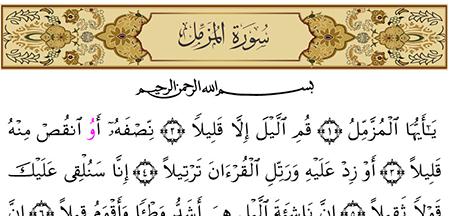 سُورَةُ المُزَّمِّلِ
بِسْمِ اللهِ الرَّحْمَنِ الرَّحِيمِ
يَٰٓأَيُّهَا ٱلْمُزَّمِّلُ ﴿١﴾ قُمِ ٱلَّيْلَ إِلَّا قَلِيلًا ﴿٢﴾ نِّصْفَهُۥٓ أَوُ ٱنقُصْ مِنْهُ
قَلِيلًا ﴿٣﴾ أَوْ زِدْ عَلَيْهِ وَرَتِّلِ ٱلْقُرْءَانَ تَرْتِيلًا ﴿٤﴾ إِنَّا سَنُلْقِى عَلَيْكَ
قَوْلًا ثَقِيلًا ﴿٥﴾ إِنَّ نَاشِئَةَ ٱلَّيْلِ هِىَ أَشَدُّ وَطْـًٔا وَأَقْوَمُ قِيلًا ﴿٦﴾ إِنَّ